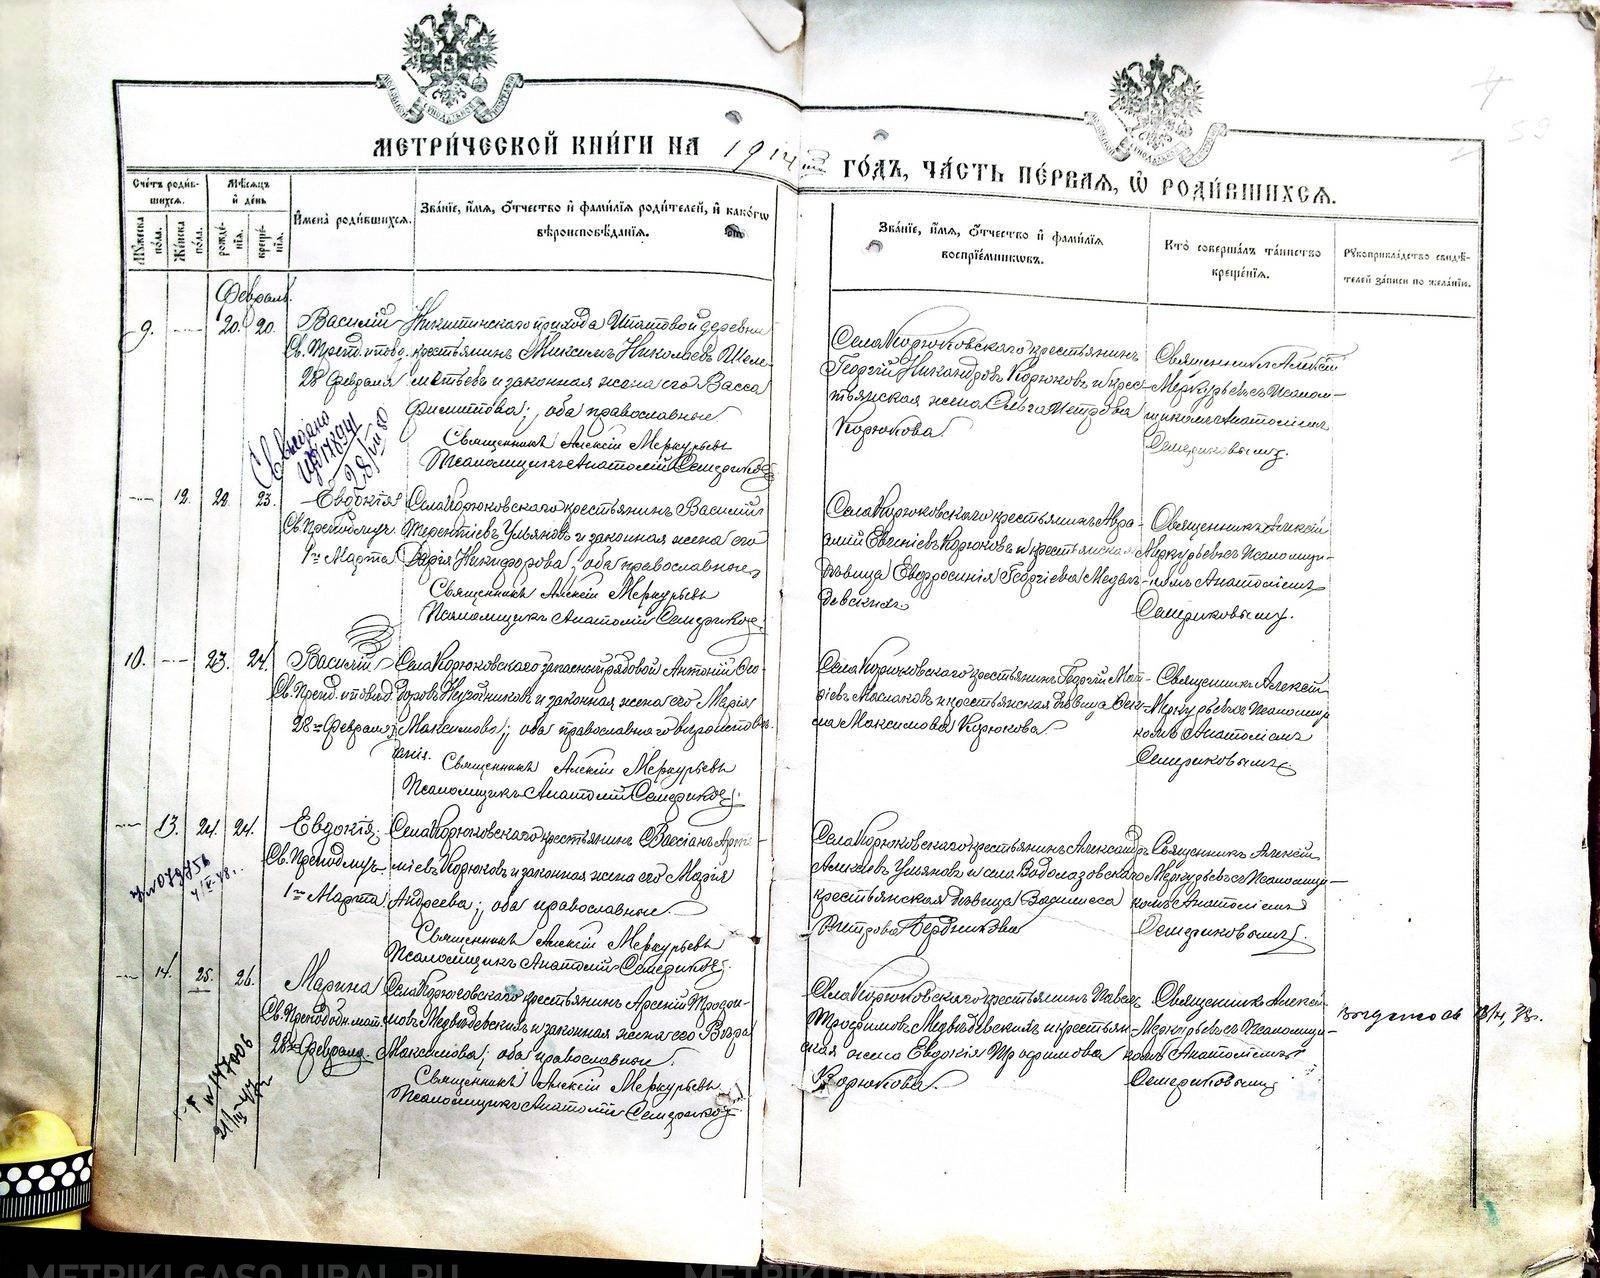 МЕТРИ́ЧЕСКОЙ КНИ́ГИ НА 1914
ГО́ДЪ, ЧА́СТЬ ПЕ́РВАЯ, Ѡ РОДИ́ВШИХСЯ.
Сче́тъ роди́в-
шихся.
Мѣ́сяцъ
и́ де́нь
Му́жеска по́ла.
Же́нска по́ла.
рожде́-
нїя.
креще́-
нїя.
И́мена̀ роди́вшихся.
Зва́нїе, и́мя, о́тчество и́ фами́лїя роди́телей, и́ како́гѡ
вѣроисповѣ́данїя.
Зва́нїе, и́мя, о́тчество и́ фами́лїя
воспрїе́мниковъ.
Кто̀ соверша́лъ та́инство
креще́нїя.
Рꙋкоприкла́дство свидѣ́-
телей за́писи по жела́нїю.
Февраль.
9. 20. 20.
Василій
28 февраля
Никитинскаго прихода Ипатовой деревни
крестьянинъ Максимъ Николаевъ Шеле-
метьевъ и законная жена его Васса
Филиппова; оба православные.
Священникъ Алексій Меркурьевъ
Псаломщикъ Анатолій Семериков
Села Корюковскаго крестьянинъ
Георгій Никандровъ Корюковъ и крес-
тьянская жена Ольга Петрова
Корюкова.
Священникъ Алексій
Меркурьевъ съ псалом-
щикомъ Анатоліемъ
Семериковымъ.
28/VII
12. 22. 23.
Евдокія
1го Марта
Села Корюковскаго крестьянинъ Василій
Терентіевъ Ульяновъ и законная жена его
Дарія Никифорова; оба православные.
Священникъ Алексій Меркурьевъ
Псаломщикъ Анатолій Семериков
Села Корюковскаго крестьянинъ Авра-
амій Евгеніевъ Корюковъ и крестьянская
дѣвица Евфросинія Георгіева Медвѣ-
девскихъ
Священникъ Алексій
Меркурьевъ съ псаломщи-
комъ Анатоліемъ
Семериковымъ.
10. 23. 24.
Василій
28го Февраля
Села Корюковскаго запасный рядовой Антоній Ѳео-
доровъ и законная жена его Марія
Максимова; оба православнаго вѣроисповѣ-
данія. Священникъ Алексій Меркурьевъ
Псаломщикъ Анатолій Семериков
Села Корюковскаго крестьянинъ Георгій Мат-
ѳіевъ и крестьянская дѣвица
Максимова Корюкова
Священникъ Алексій
Меркурьевъ съ псаломщи-
комъ Анатоліемъ
Семериковымъ.
13. 24. 24.
Евдокія
1го Марта
Села Корюковскаго крестьянинъ Вассіанъ Арте-
міевъ Корюковъ и законная жена его Марія
Андреева; оба православные.
Священникъ Алексій Меркурьевъ
Псаломщикъ Анатолій Семериков
Села Корюковскаго крестьянинъ Александръ
Алексіевъ Ульяновъ и села Водолазовскаго
крестьянская дѣвица Василисса
Петрова Бердникова
Священникъ Алексій
Меркурьевъ съ псаломщи-
комъ Анатоліемъ
Семериковымъ.
14. 25. 26.
Марина
28го Февраля.
Села Корюковскаго крестьянинъ Арсеній Трофи-
мовъ Медвѣдевскихъ и законная жена его Варвара
Максимова; оба православные.
Священникъ Алексій Меркурьевъ
Псаломщикъ Анатолій Семериков
Села Корюковскаго крестьянинъ Павелъ
Трофимовъ Медвѣдевскихъ и крестьян-
ская жена Евдокія Трофимова
Корюкова.
Священникъ Алексій
Меркурьевъ съ псаломщи-
комъ Анатоліемъ
Семериковымъ
METRIKI.GASO-URAL.RU